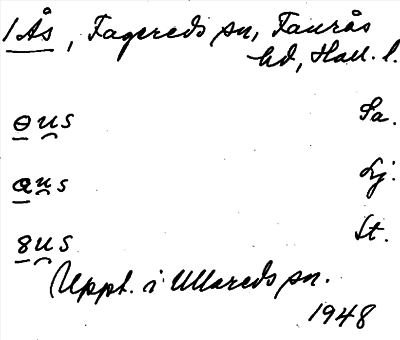 1 Ås, Fagereds sn, Faurås
hd, Hall. l.
ɵus Sa.
aus Lj.
8us St.
Uppt. i Ullareds sn.
1948